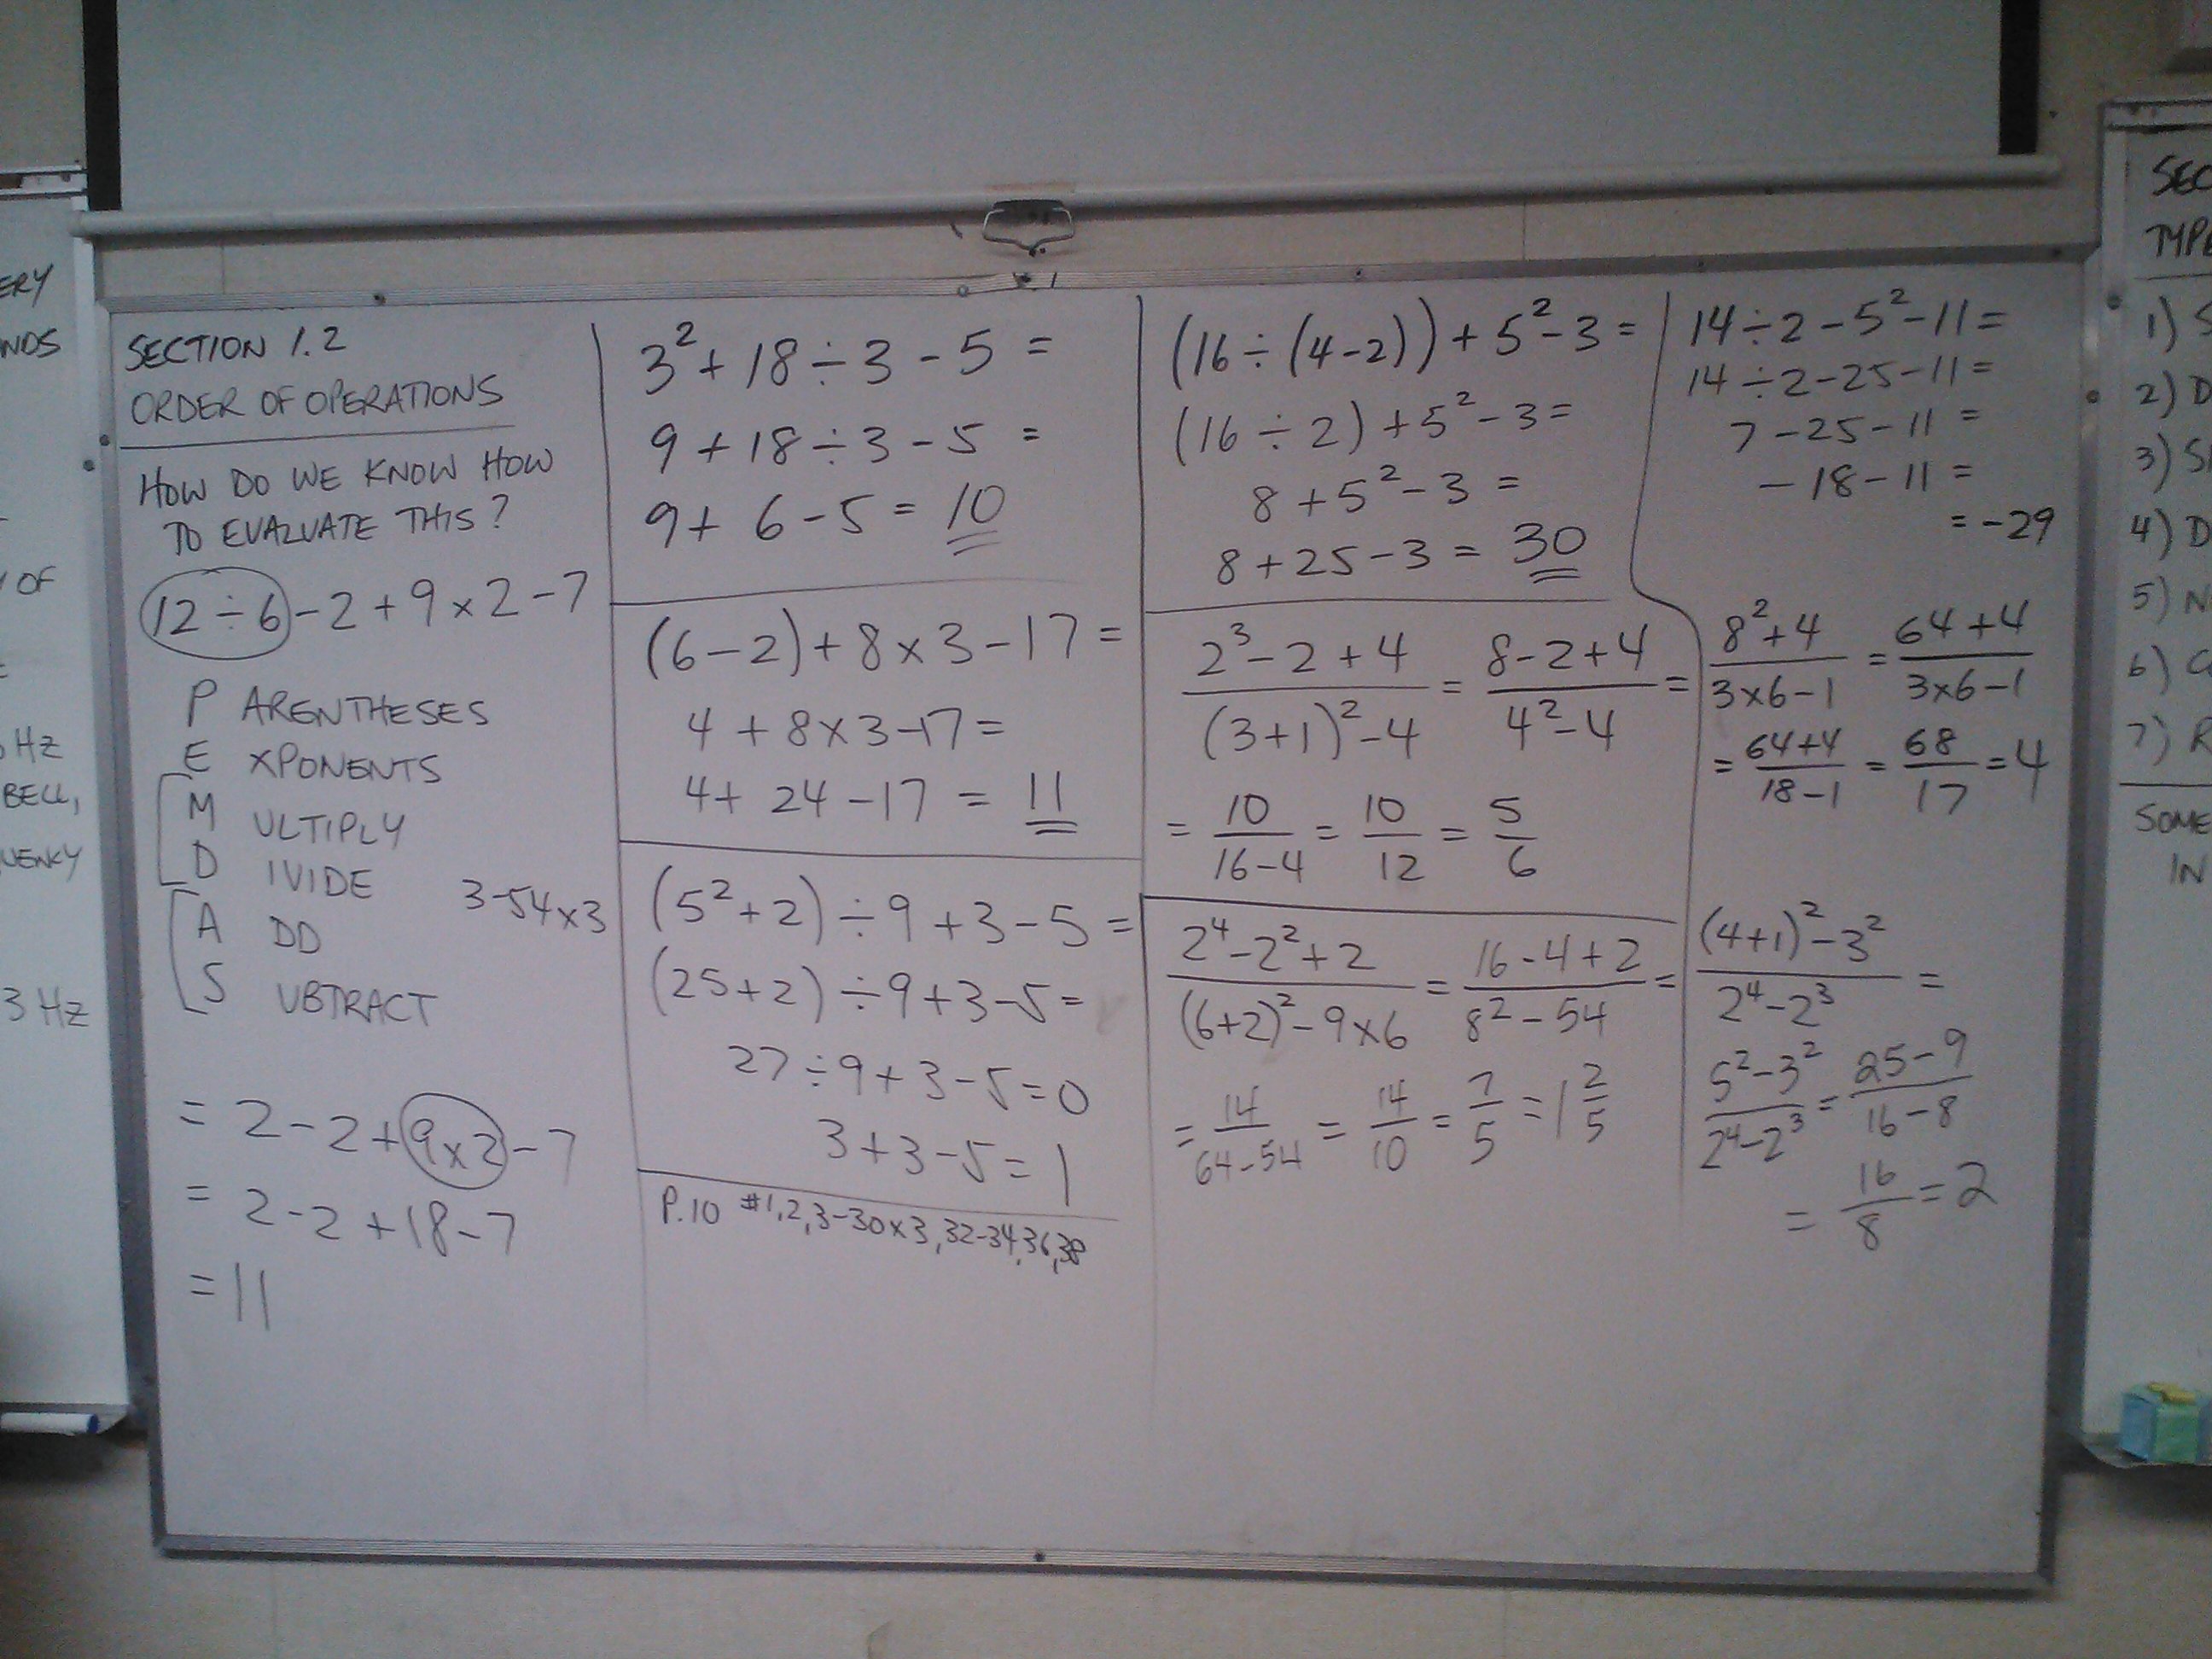 ERY
NDS
OF
Hz
BELL,
UENCY
3 Hz
SECTION 1.2
ORDER OF OPERATIONS
HOW DO WE KNOW HOW
TO EVALUATE THIS?
12 ÷ 6 - 2 + 9 x 2 - 7
P ARENTHESES
E XPONENTS
M ULTIPLY
D IVIDE
A DD
S UBTRACT
3-54x3
= 2 - 2 + 9x2 - 7
= 2 - 2 + 18 - 7
= 11
3² + 18 ÷ 3 - 5 =
9 + 18 ÷ 3 - 5 =
9 + 6 - 5 = 10
(6-2) + 8 x 3 - 17 =
4 + 8 x 3 - 17 =
4 + 24 - 17 = 11
(5² + 2) ÷ 9 + 3 - 5 =
(25+2) ÷ 9 + 3 - 5 =
27 ÷ 9 + 3 - 5 = 0
3 + 3 - 5 = 1
P.10 #1,2,3-30x3,32-34,36,38
(16 ÷ (4-2)) + 5² - 3 =
(16 ÷ 2) + 5² - 3 =
8 + 5² - 3 =
8 + 25 - 3 = 30
2³ - 2 + 4 / (3+1)² - 4 = 8 - 2 + 4 / 4² - 4 =
= 10 / 16-4 = 10/12 = 5/6
2⁴ - 2² + 2 / (6+2)² - 9x6 = 16 - 4 + 2 / 8² - 54 =
= 14 / 64-54 = 14/10 = 7/5 = 1 2/5
14 ÷ 2 - 5² - 11 =
14 ÷ 2 - 25 - 11 =
7 - 25 - 11 =
- 18 - 11 =
= -29
8² + 4 / 3x6-1 = 64 + 4 / 3x6-1
= 64+4 / 18-1 = 68/17 = 4
(4+1)² - 3² / 2⁴ - 2³ =
5² - 3² / 2⁴ - 2³ = 25 - 9 / 16 - 8
= 16/8 = 2
SEC
TYPE
1) S
2) D
3) S
4) D
5) N
6) C
7) R
SOME
IN